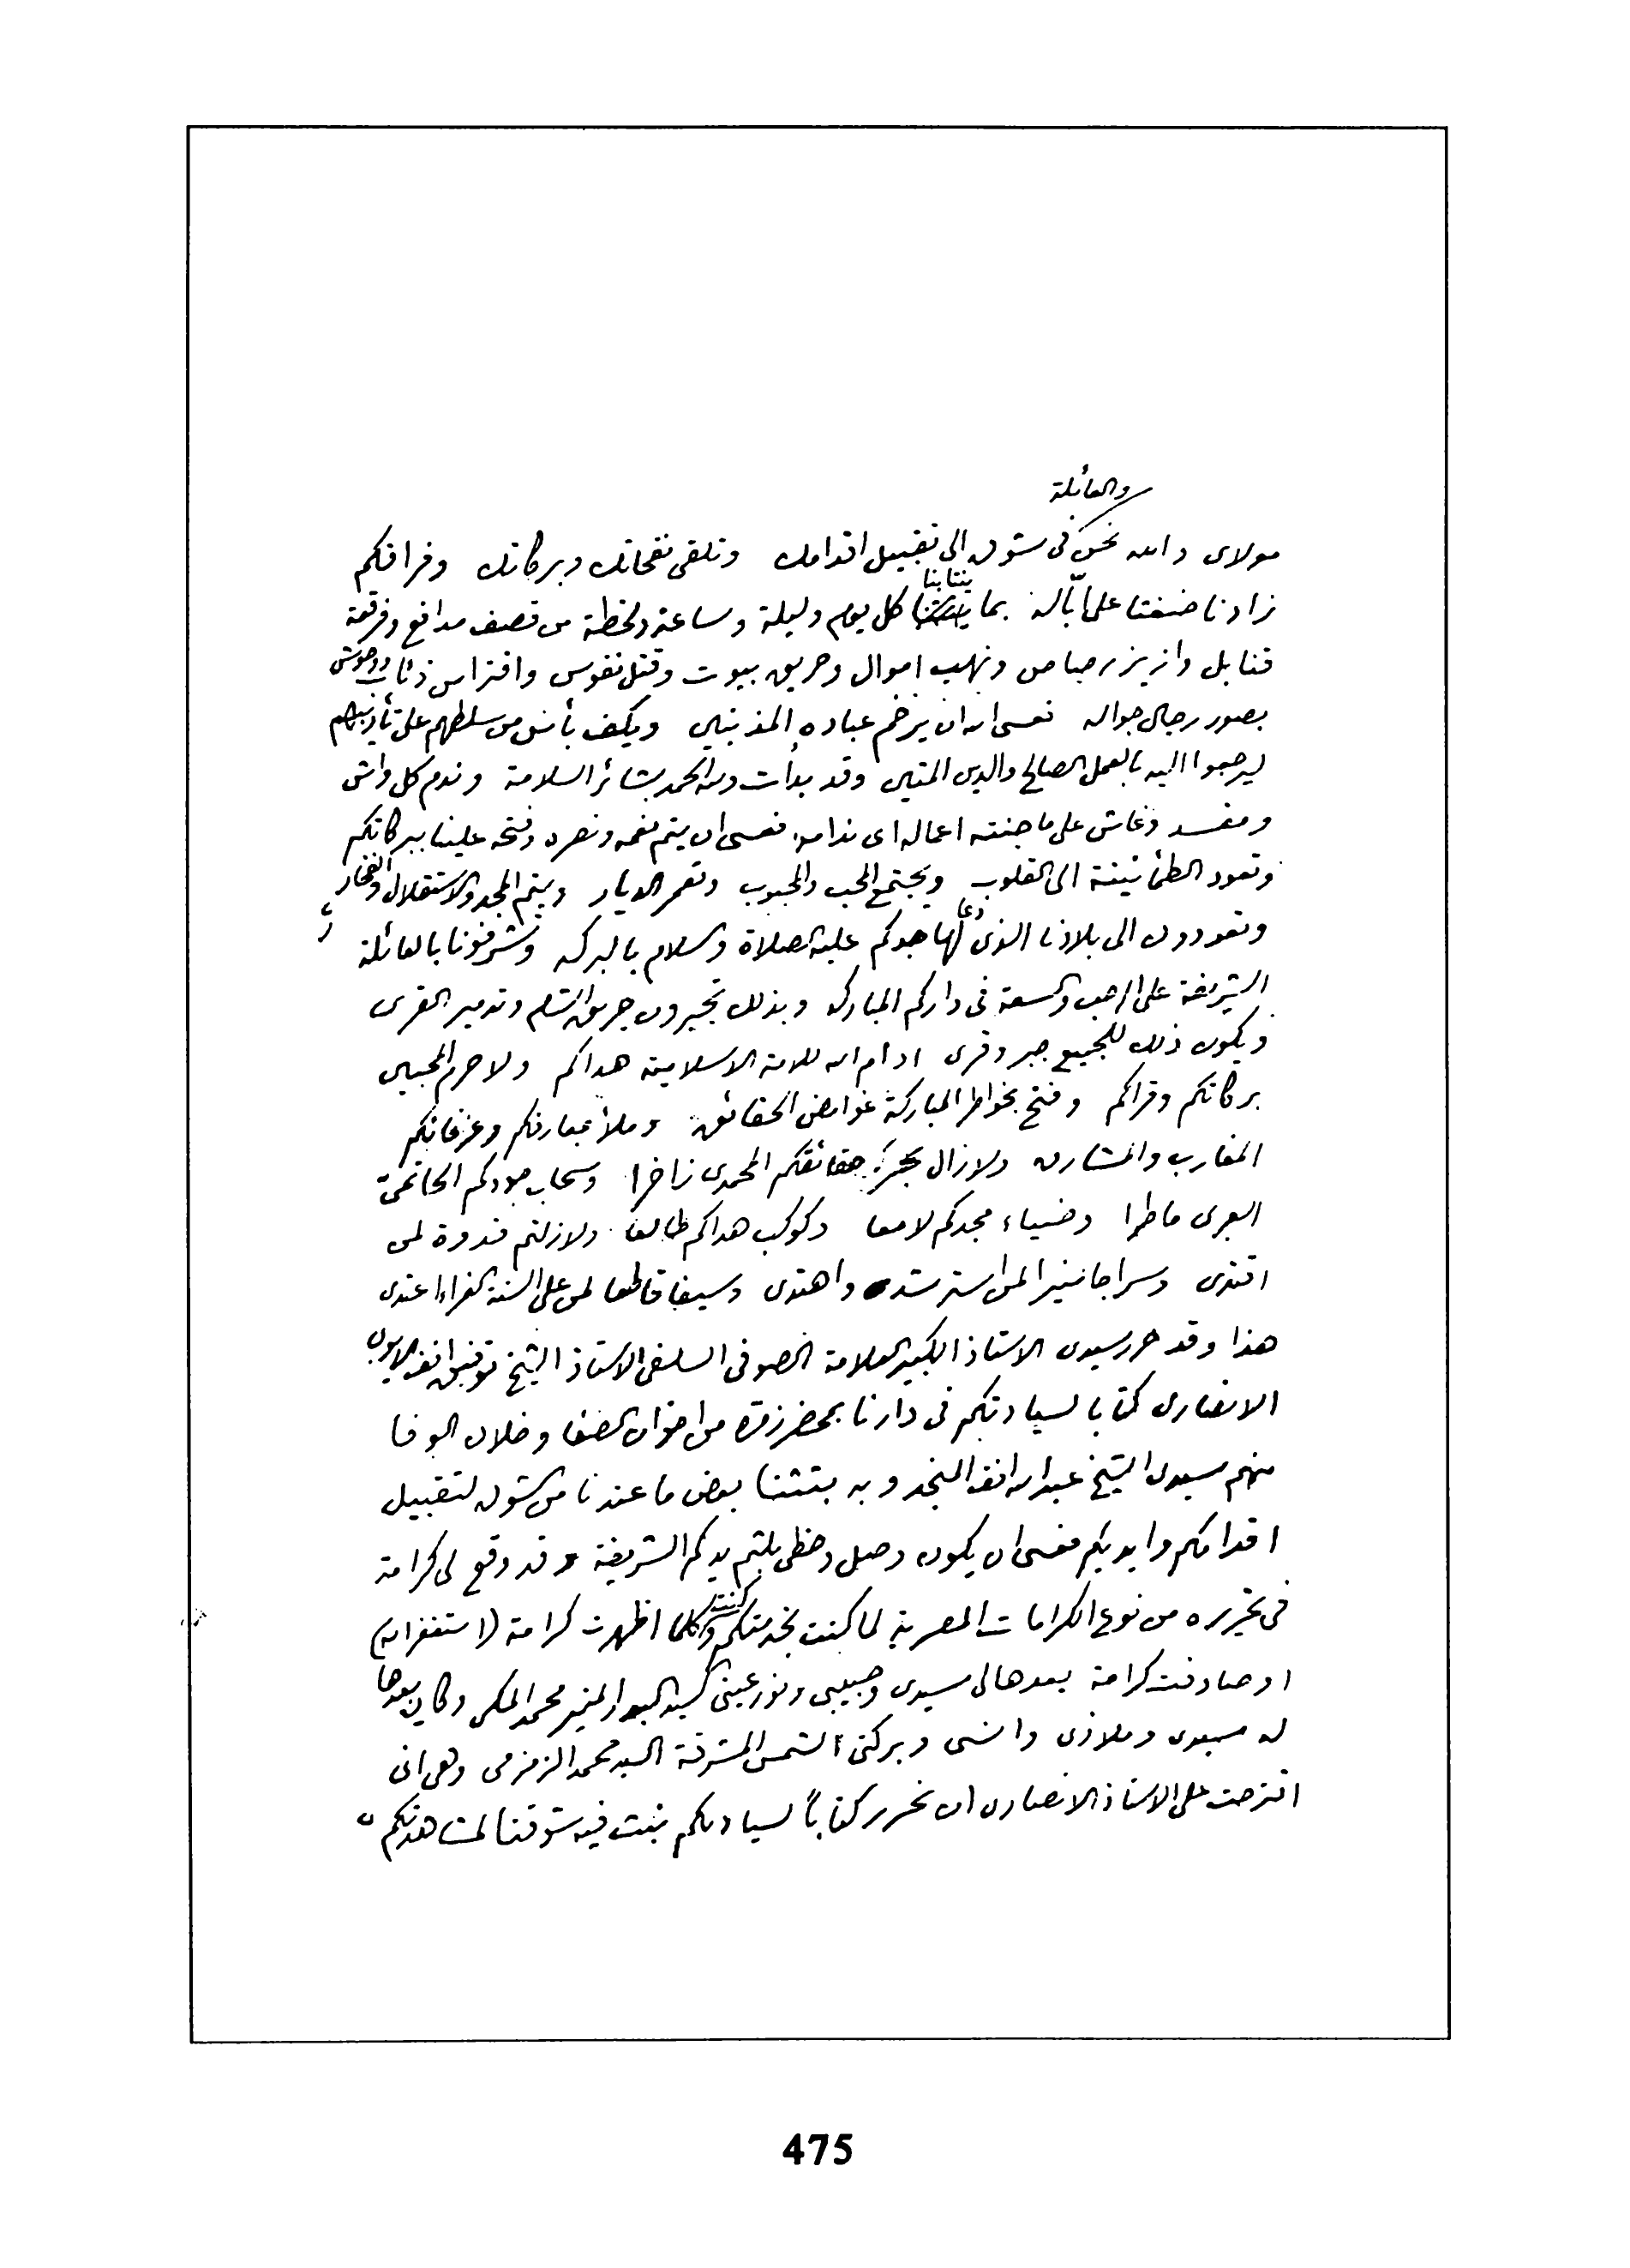 والعائلة
مولاى والله نحن فى شوق الى تقبيل اقدامك وتلقى نفحاتك وبركاتك وفراقكم
زادنا ضغثا على ابّاله بما ينتابنا كل يوم وليلة وساعة ولحظة من قصف مدافع وفرقعة
قنابل وازيز رصاص ونهب اموال وحريق بيوت وقتل نفوس وافتراس ذئاب ووحوش
بصور رجال جواله فعسى الله ان يرحم عباده المذنبين ويكف بأس من سلطهم على تأديبهم
ليرجعوا اليه بالعمل الصالح والدين المتين وقد بدأت ولله الحمد بشائر السلامة وندم كل واش
ومفسد وغاش على ما جنته اعماله اى ندامه فعسى ان يتم نعمه ونصره وفتحه علينا ببركاتكم
وتعود الطمأنينة الى القلوب ويجتمع المحب والمحبوب وتعمر الديار ويتم المجد والاستقلال والفخار
وتعودون الى بلادنا الذى دعا لها جدكم عليه الصلاة والسلام بالبركه وتشرفونا بالعائلة
الشريفة على الرحب والسعة فى داركم المباركه وبذلك تجبرون حريق الشام وتدمير القرى
ويكون ذلك للجميع جبر وقرى ادام الله للامة الاسلامية هداكم ولا حرم المحبين
بركاتكم وقراكم وفتح بخواطركم المباركة غوامض الحقائق وملأ بمعارفكم وعرفانكم
المغارب والمشارق ولازال بحر حقائقكم المحمدى زاخرا وسحاب جودكم الحاتمى
العربى ماطرا وضياء مجدكم لامعا وكوكب هداكم طالعا ولازلتم قدوة لمن
اقتدى وسراجا منيرا لمن استرشد واهتدى وسيفا قاطعا لمن على السنة الغراء اعتدى
هذا وقد حرر سيدى الاستاذ الكبير العلامة الصوفى السلفى الاستاذ الشيخ توفيق افندى الايوبى
الانصارى كتابا لسيادتكم فى دارنا بمحضر زمرة من اخوان الصفا وخلان الوفا
منهم سيدى الشيخ عبد الله افندى المنجد وبه بثثنا بعض ما عندنا من الشوق لتقبيل
اقدامكم وايديكم فعسى ان يكون وصل وحظى بلثم يدكم الشريفة وقد وقع لى كرامة
فى تحريره من نوع الكرامات المصرية لما كنت بخدمتكم وكنت كلما اظهرت كرامة (استغفر الله)
او صادفت كرامة بعدها لى سيدى وحبيبى ونور عينى السيد البدر المنير محمد المكى وكان يعدها
له سيدى وملاذى وانسى وبركتى الشمس المشرقة السيد محمد الزمزمى وهى انى
اقترحت على الاستاذ الانصارى ان نحرر كتاباً لسيادتكم نبث فيه شوقنا لمشاهدتكم
475